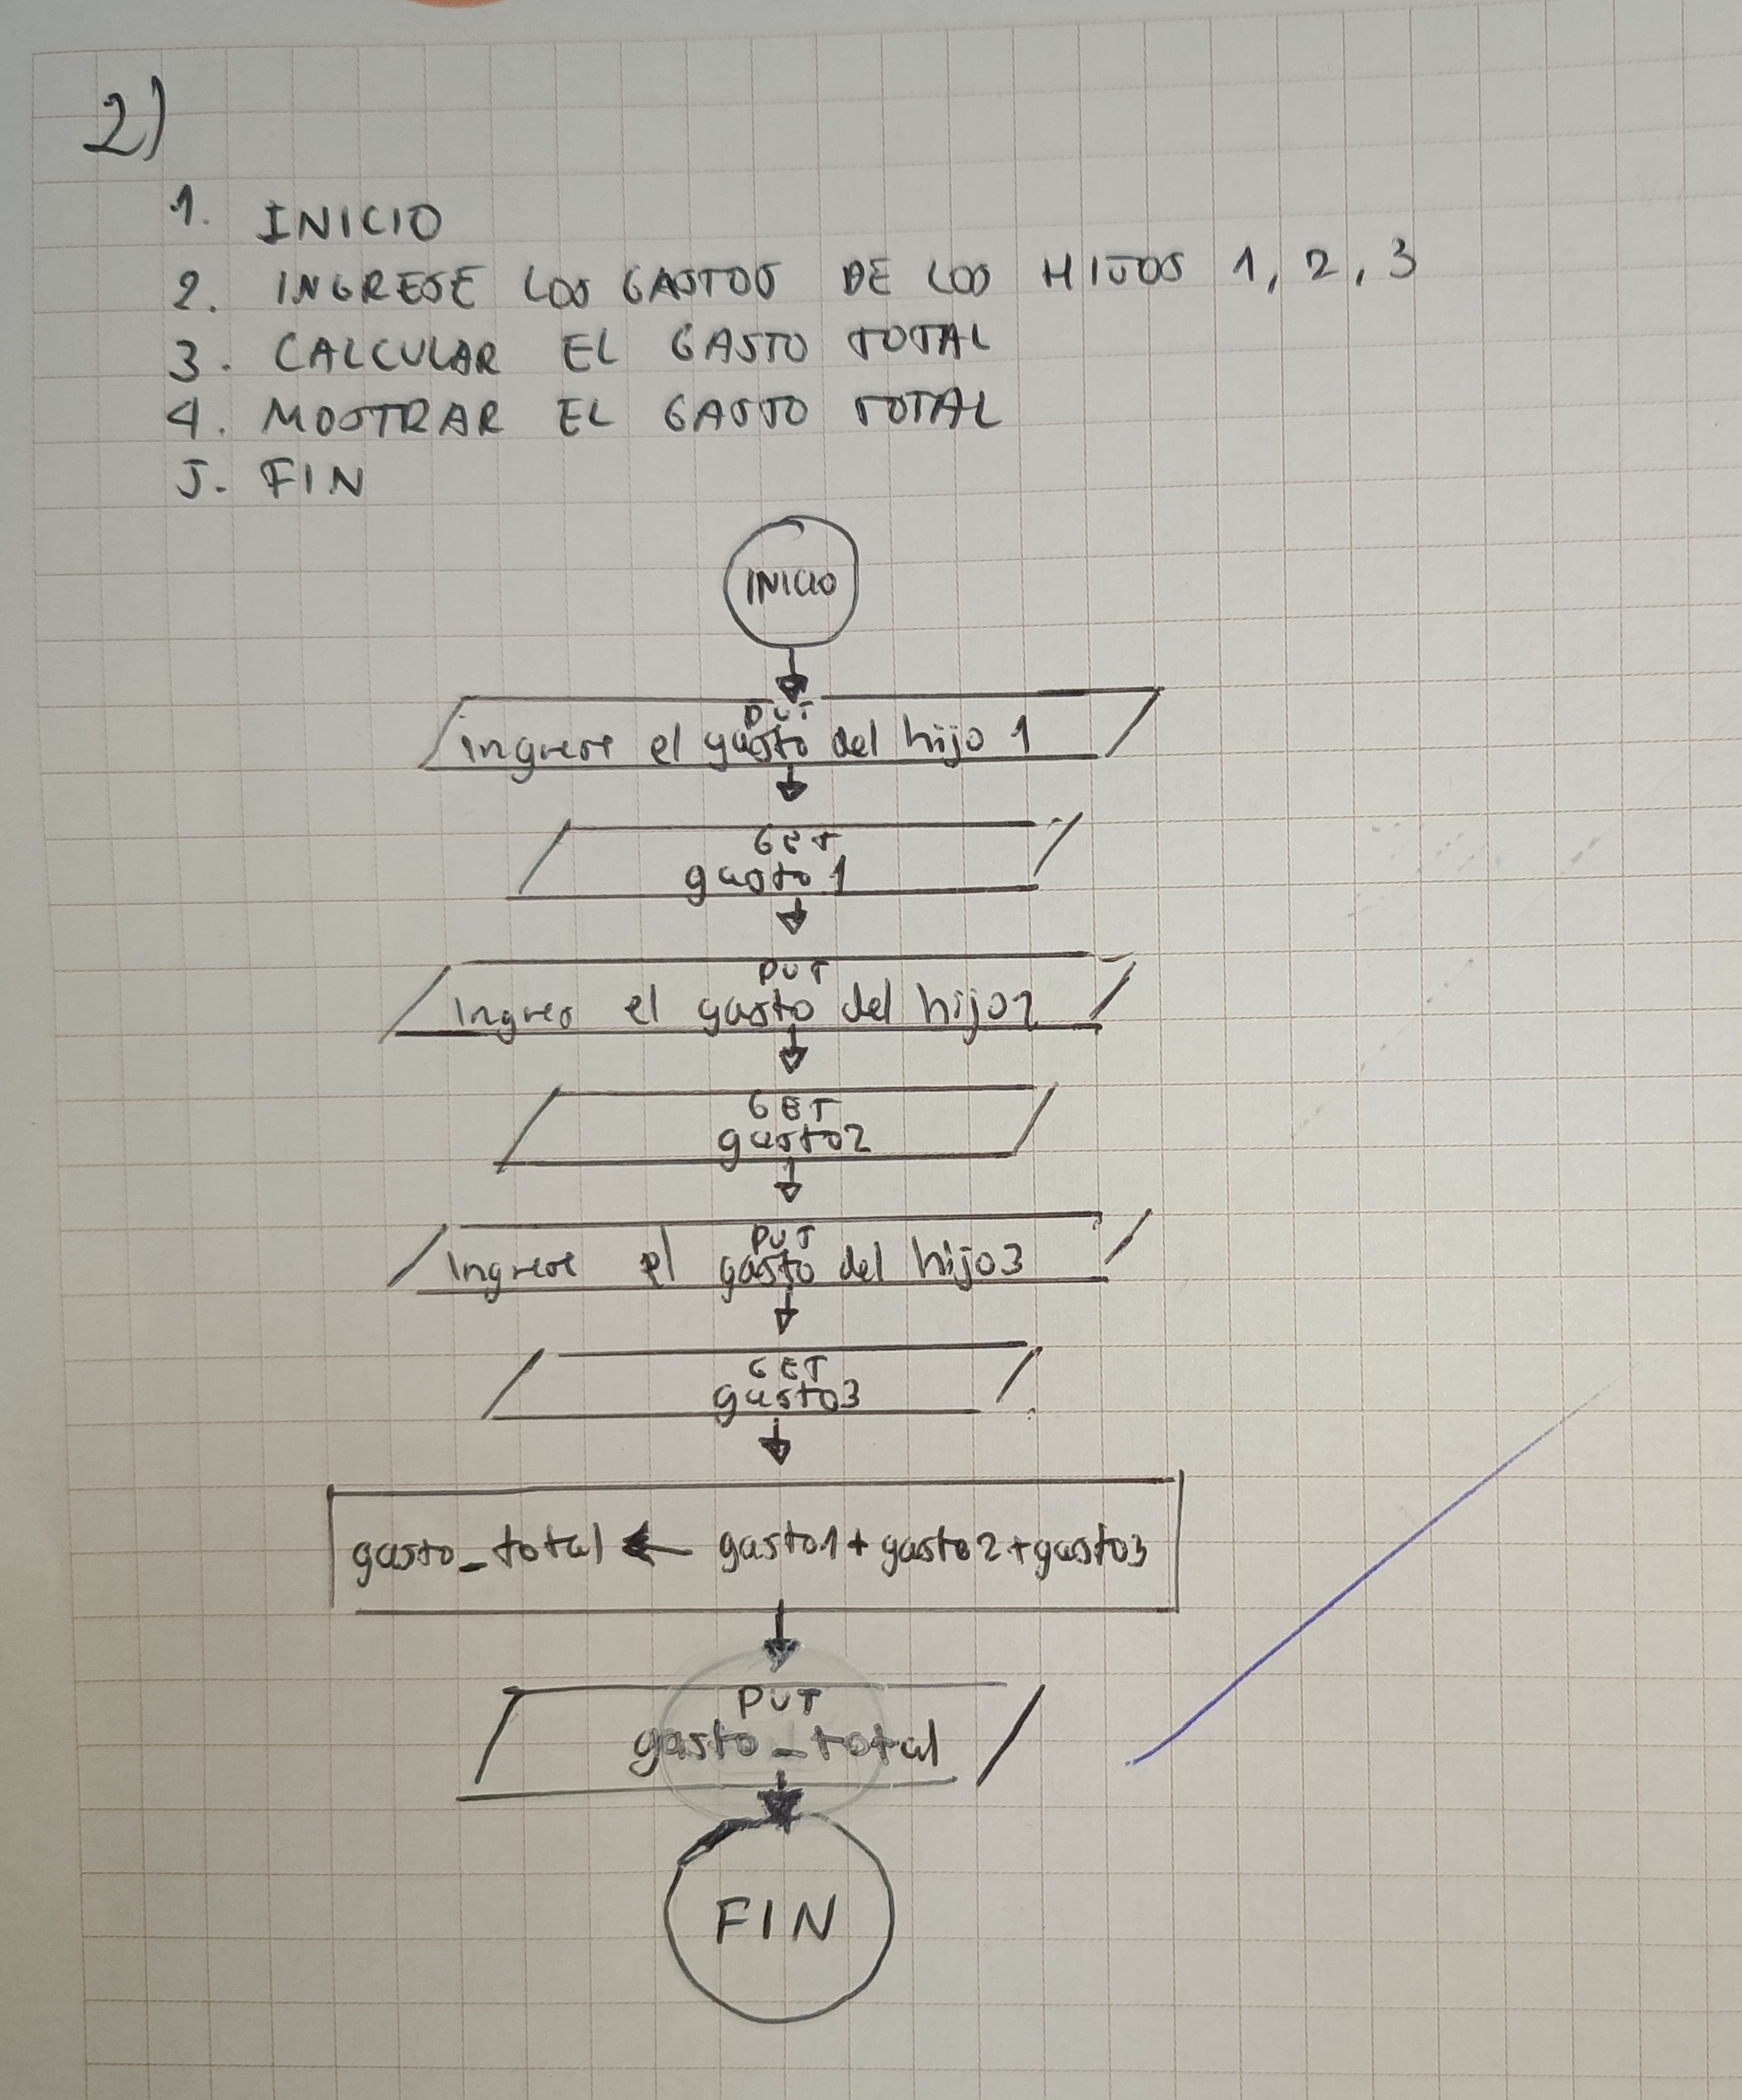 2)
1. INICIO
2. INGRESE LOS GASTOS DE LOS HIJOS 1, 2, 3
3. CALCULAR EL GASTO TOTAL
4. MOSTRAR EL GASTO TOTAL
5. FIN
INICIO
PUT
ingrese el gasto del hijo 1
GET
gasto1
PUT
Ingres el gasto del hijo2
GET
gasto2
PUT
Ingrese el gasto del hijo3
GET
gasto3
gasto_total ← gasto1+gasto2+gasto3
PUT
gasto_total
FIN